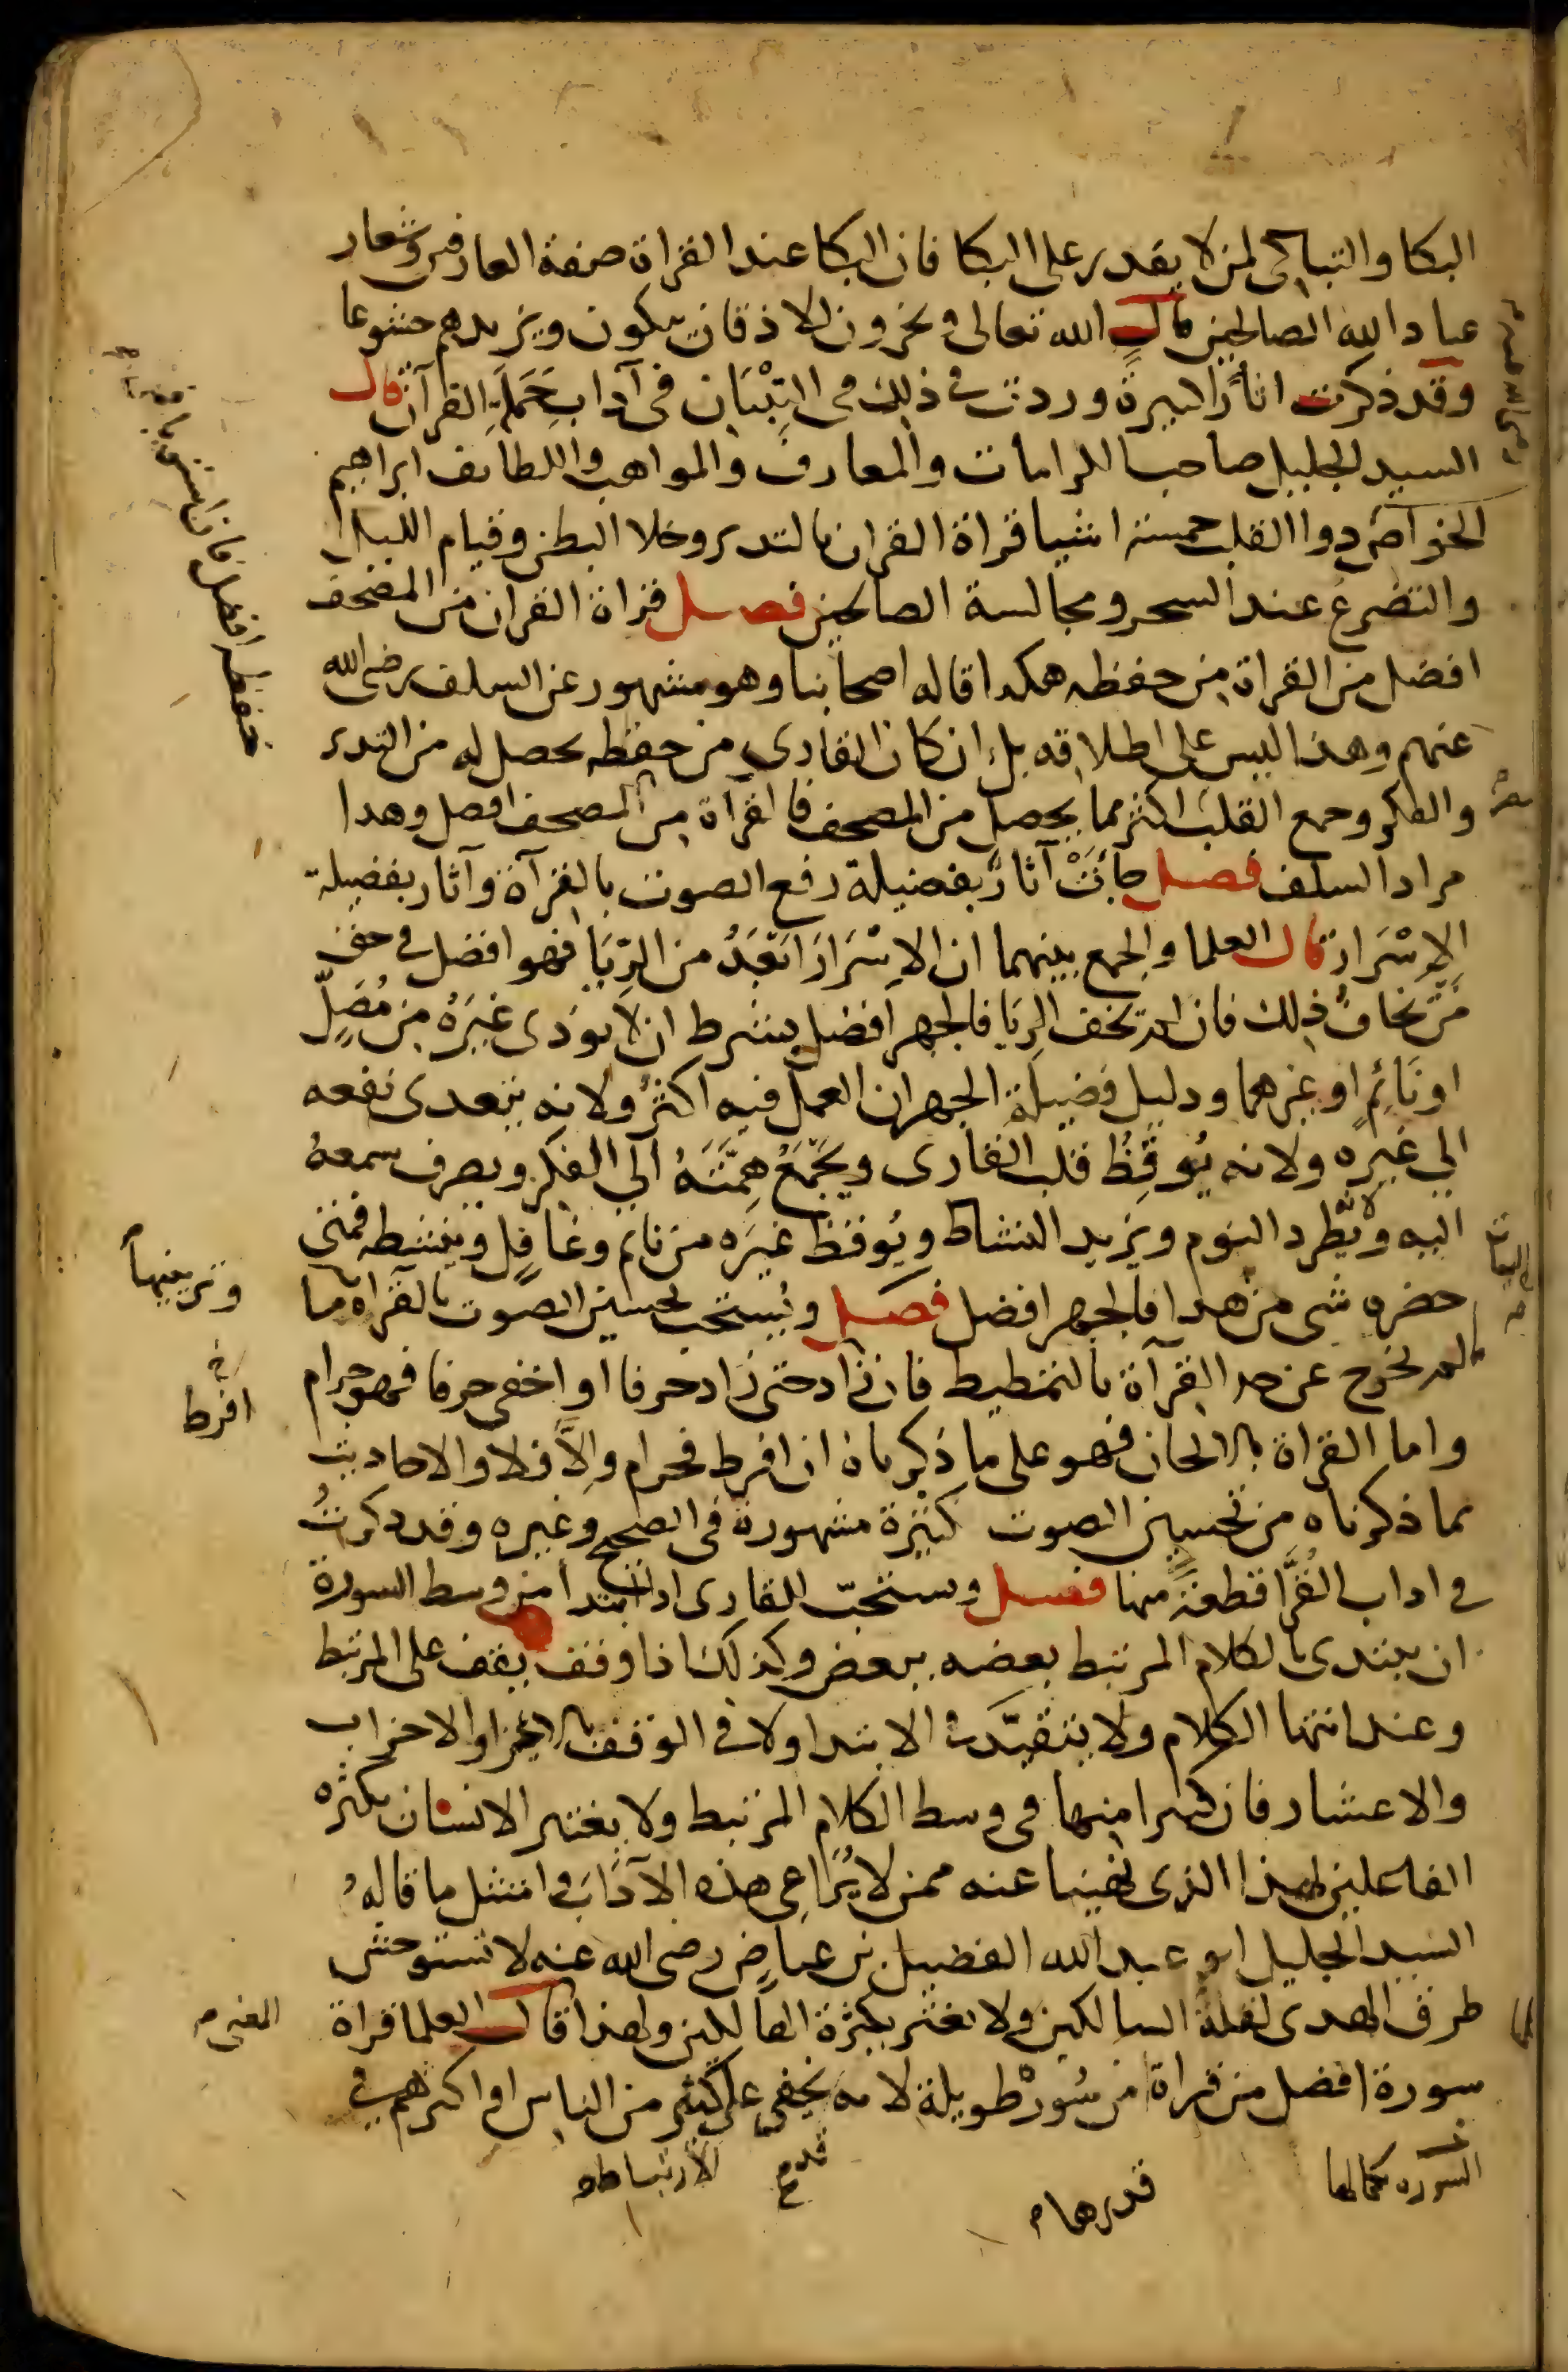 البكا والتباكى لمن لا يقدر على البكا فان البكا عند القراة صفة العارفين وشعار
عباد الله الصالحين قال الله تعالى ويخرون للاذقان يبكون ويزيدهم خشوعا
وقد ذكرت اثارًا كثيرةً وردت في ذلك في التِبْيَان في آداب حَمَلَةِ القرآن قال
السيد الجليل صاحب الكرامات والمعارف والمواهب واللطائف ابراهيم
الخواص دوا القلب خمسة اشيا قراة القران بالتدبر وخلا البطن وقيام الليل
والتضرع عند السحر ومجالسة الصالحين فصل قراة القران من المصحف
افضل من القراة من حفظه هكذا قاله اصحابنا وهو مشهور عن السلف رضى الله
عنهم وهذا ليس على اطلاقه بل ان كان القارى من حفظه يحصل له من التدبر
والفكر وجمع القلب اكثر مما يحصل من المصحف فالقرآة من المصحف افضل وهدا
مراد السلف فصل جأتْ آثارٌ بفضيلة رفع الصوت بالقرآة وآثار بفضيلة
الإسْرَار قال العلما والجمع بينهما ان الاِسْرَارَ ابَعَدُ من الرِّيَا فهو افضل في حق
مَنْ يخافُ ذلك فان لم يخف الرِيَا فالجهر افضل بشرط ان لا يوذى غيَرَهُ من مُصَلٍّ
او نَائِمٍ او غيرهما ودليل فضيلة الجهر ان العمل فيه اكثرُ ولانه يتعدى نفعه
الي غيره ولانه يُوقِظُ قلب القارى ويَجْمَعُ هِمَّتَهُ الي الفكر ويصرف سمعهُ
اليه ولانه يطرد النوم ويزيد النشاط ويُوقظ غيَره من نائم وغافِلٍ وينشطه فمتى
حضره شى من هدا فالجهر افضل فصل ويُستحب تحسين الصوت بالقراة ما
لم يخرج عن حد القرآة بالتمطيط فان زَاد حتى زَاد حرفا او اخفى حرفا فهو حرام
واما القراة بالالحان فهو على ما ذكرناه ان افرط فحرام وإلاَّ فلا والاحاديث
بما ذكرناه من تحسين الصوت كثيرة مشهورة في الصحيح وغيره وقد دكرتُ
في اداب القُرَّا قطعةً منها فصل ويستحبّ للقارى اذا ابتدا من وسط السورة
ان يبتدى بالكلام المرتبط بعضه ببعض وكذلك اذا وقف يقف على المرتبط
وعند انتها الكلام ولا يتقيَّد في الابتدا ولا في الوقف بالاجزا والاحزاب
والاعشار فان كثيرا منها في وسط الكلام المرتبط ولا يغتر الانسان بكثره
الفاعلين لهذا الذى نهينا عنه ممن لا يُرَاعِى هذه الآدَابَ وامتثل ما قالهُ
السيد الجليل ابو عبد الله الفضيل بن عياض رضى الله عنه لا تستوحش
طرق الهدى لقلة السالكين ولا تغتر بكثرة الهالكين ولهذا قال العلما قراة
سورة افضل من قراة من سُورْ طويلة لانه يخفى على كثير من الناس او اكثرهم في
وتزيينها
افرط
السورة بكمالها
قدرها
الارتباط